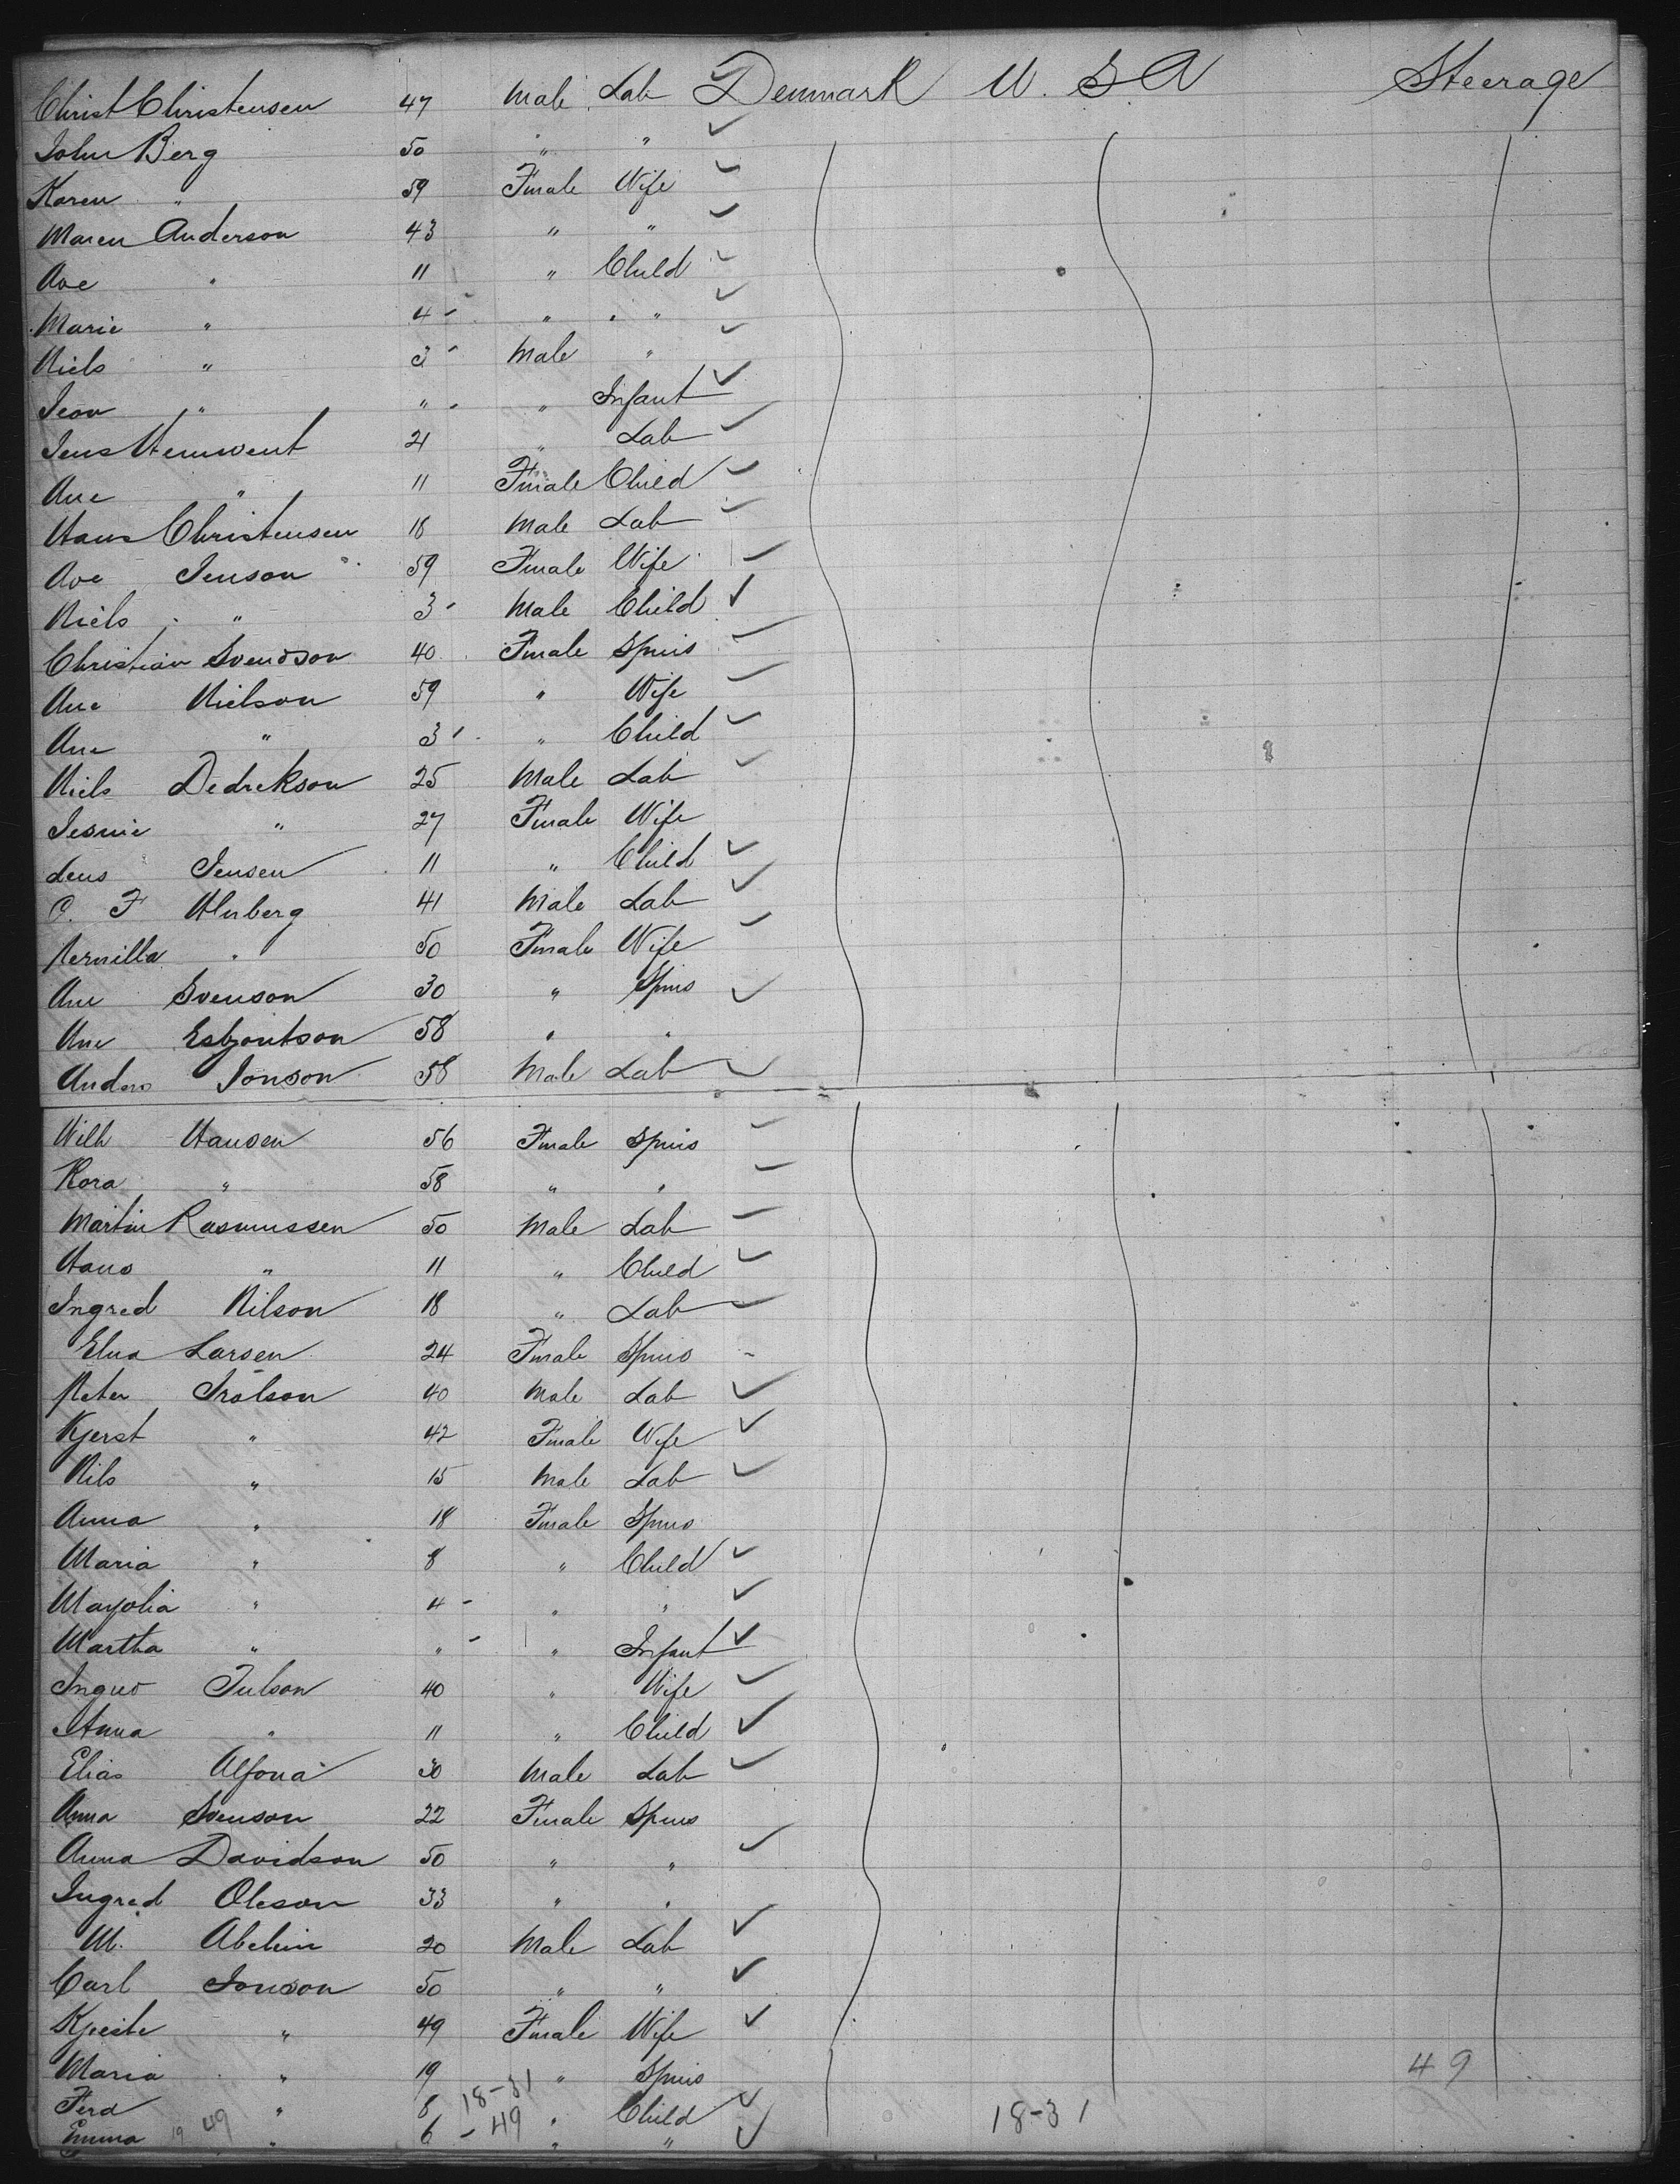 Christ Christensen 47 Male Lab Denmark U.S.A Steerage
John Berg 50 " "
Karen " 59 Female Wife
Maren Anderson 43 " "
Ave " 11 " Child
Marie " 4 - " "
Niels " 3 - Male "
" " - " Infant
Jens 21 " Lab
Ane " 11 Female Child
Hans Christensen 18 Male Lab
Ave Jenson 59 Female Wife
Niels " 3 - Male Child
Christian Svendson 40 Female Spins
Ane Nielson 59 " Wife
Ane " 3 - " Child
Niels Dedrekson 25 Male Lab
" 27 Female Wife
Lens Jensen 11 " Child
F 41 Male Lab
Pernilla " 50 Female Wife
Ane Svenson 30 " Spins
Ane Esbjontson 58 " "
Anders Jonson 58 Male Lab
Wilh Hansen 56 Female Spins
Kora " 58 " "
Martin Rasmussen 50 Male Lab
Hans " 11 " Child
Ingred Nilson 18 " Lab
Elna Larsen 24 Female Spins
Peter Trolson 40 Male Lab
Kjerst " 42 Female Wife
Nils " 15 Male Lab
Anna " 18 Female Spins
Maria " 8 " Child
" 4 - " "
Martha " " - " Infant
40 " Wife
Anna " 11 " Child
Elias 30 Male Lab
Anna Svenson 22 Female Spins
Anna Davidson 50 " "
Ingred Oleson 33 " "
M. 20 Male Lab
Carl Jonson 50 " "
" 49 Female Wife
Maria " 19 " Spins 49
18-31
Ferd " 8 " Child 18-31
Emma 19 49 " 6 - 49 " "